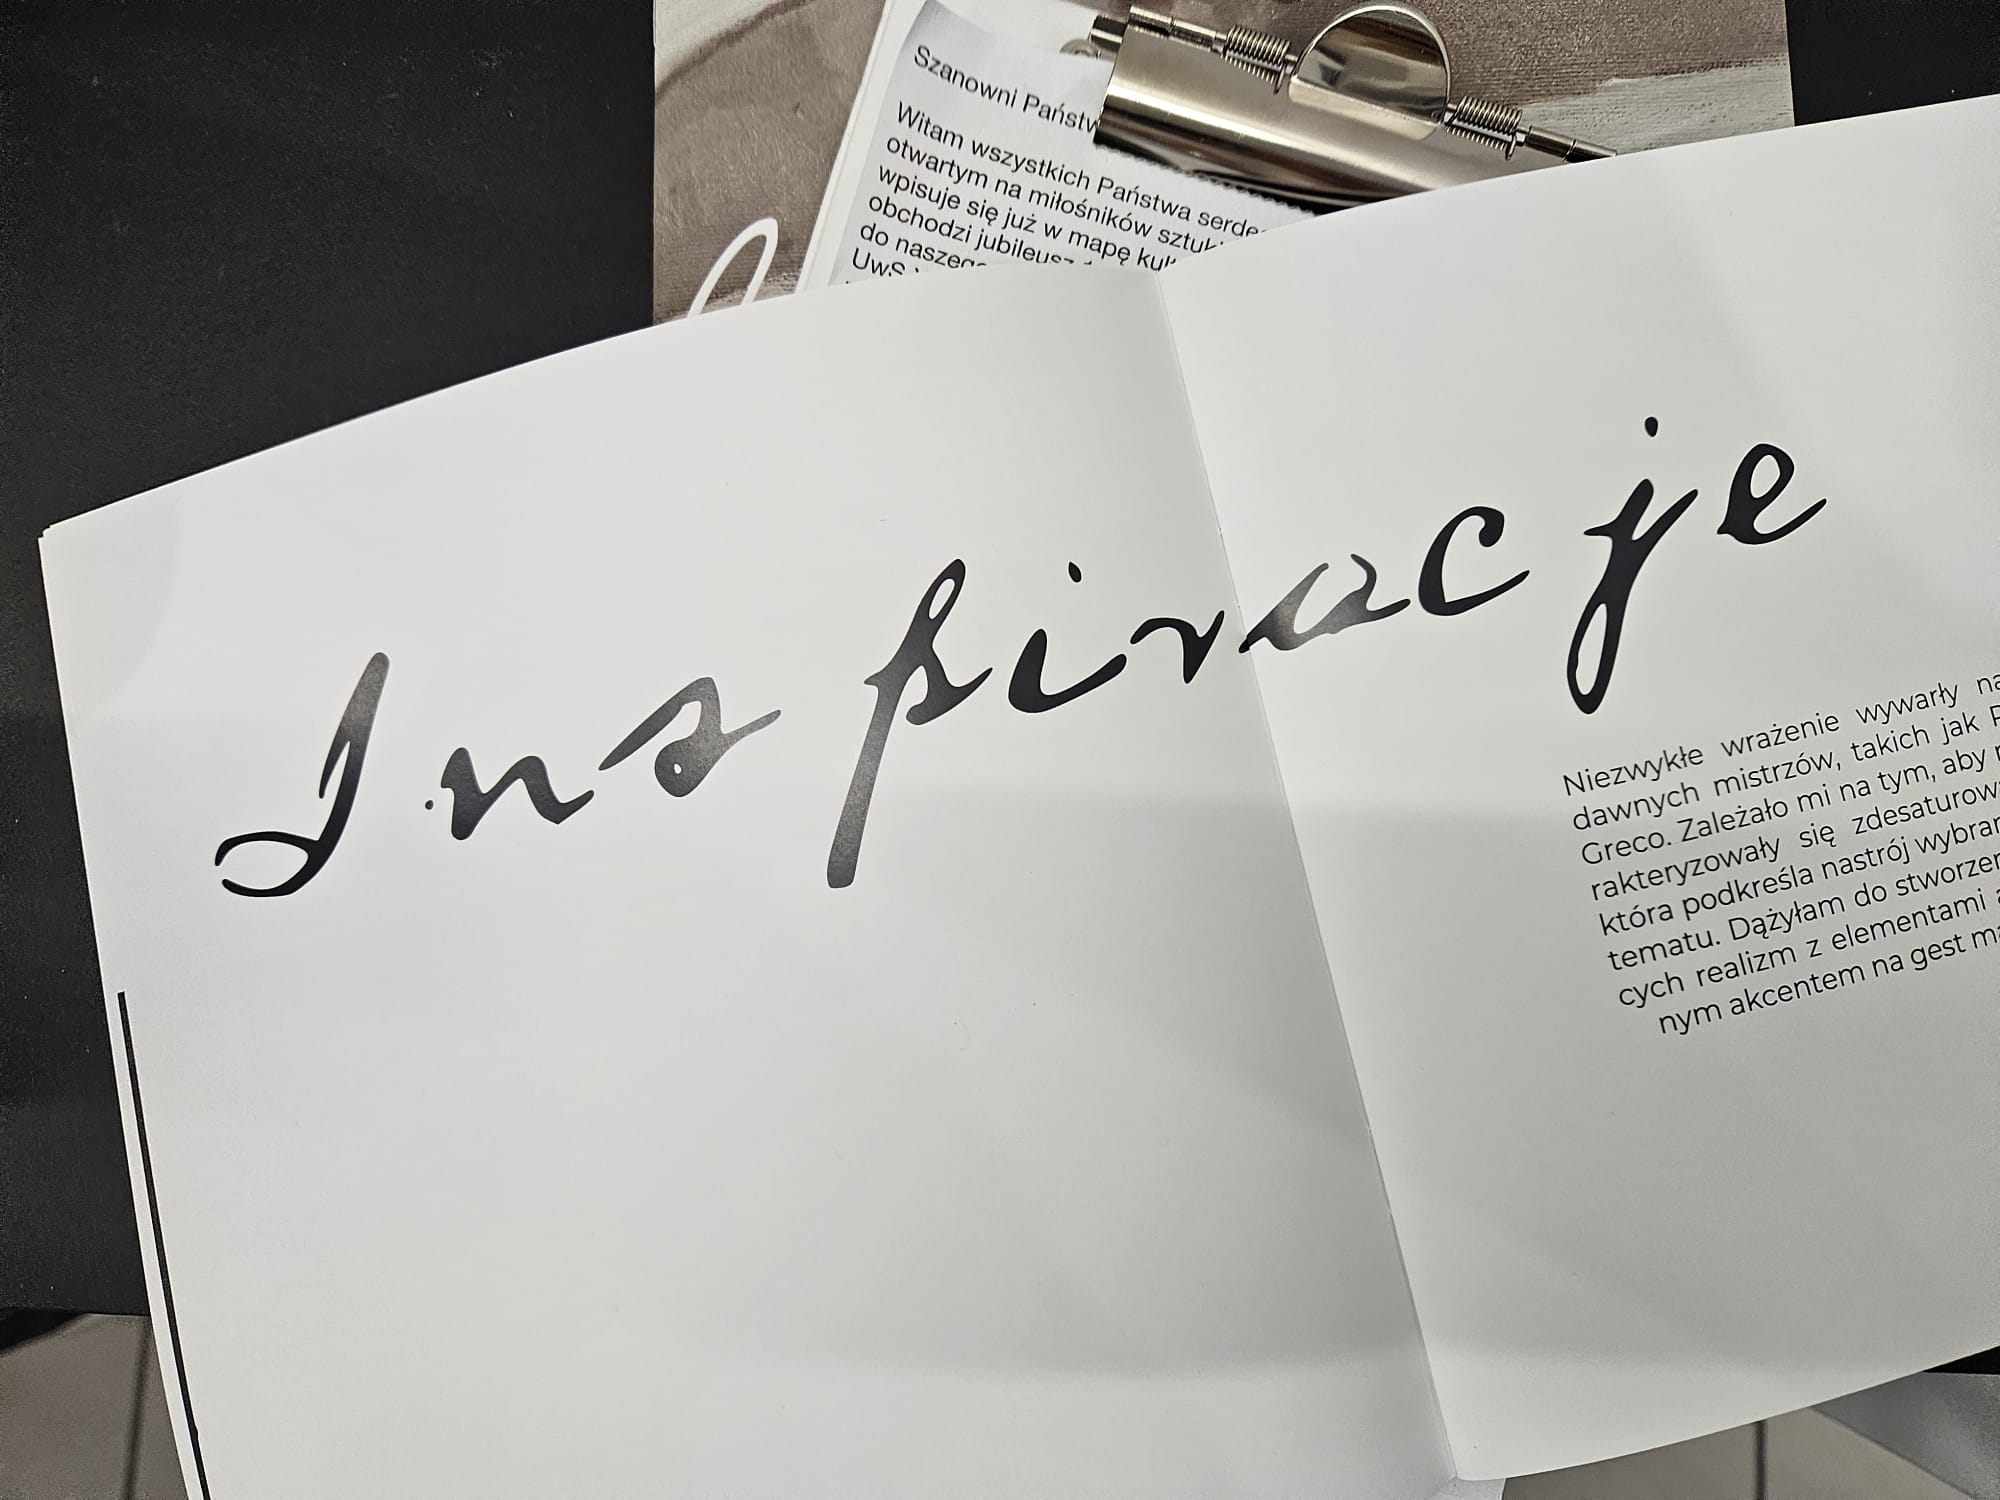 Szanowni
Witam wszystkich Państwa
otwartym na miłośników
wpisuje się już w mapę
obchodzi jubileusz
do
Inspiracje
Niezwykłe wrażenie wywarły
dawnych mistrzów, takich jak
Greco. Zależało mi na tym, aby
rakteryzowały się
która podkreśla nastrój
tematu. Dążyłam do
cych realizm z elementami
nym akcentem na gest